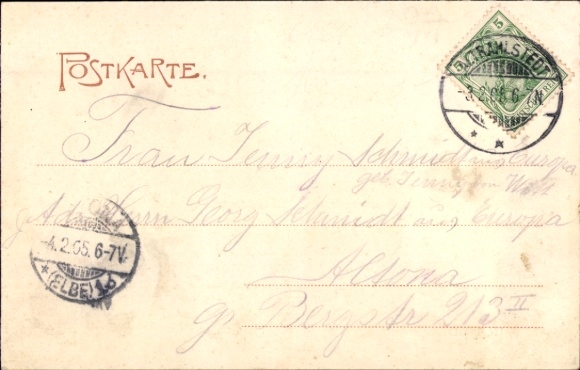 POSTKARTE.
5
RAHLSTEDT
3.2.05 6- N
Frau Jenny Schmidt aus Europa
geb. Jenny von
Adr. Herrn Georg Schmidt aus Europa
ALTONA
-4.2.05. 6-7V.
* (ELBE) 1b
Altona
gr. Bergstr 213 II